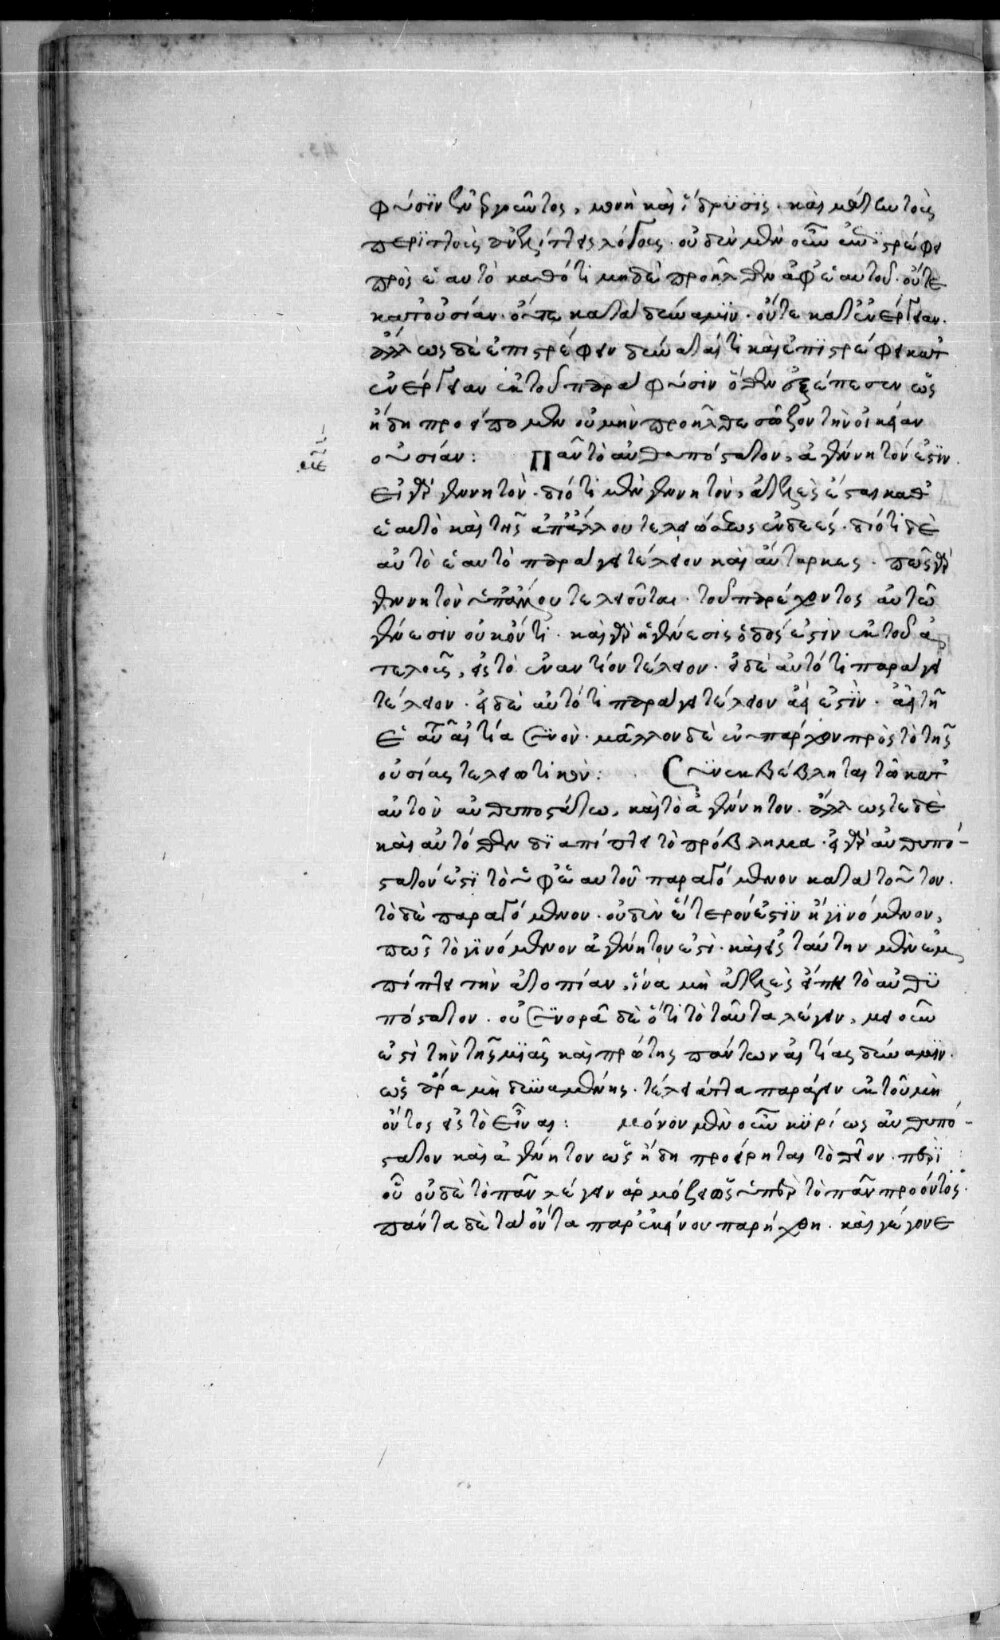 φύσιν ἐνεργοῦντος, μονὴ καὶ ἵδρυσις. καὶ μάτην τοῖς
περιττοῖς ἀνελίττεις λόγοις. οὐδὲν μὲν οὖν ἐπιστρέφει
πρὸς ἑαυτὸ καθότι μηδὲ προῆλθεν ἀφ' ἑαυτοῦ. οὔτε
κατ' οὐσίαν. οὔτε κατὰ δύναμιν. οὔτε κατ' ἐνέργειαν.
ἄλλως δὲ ἐπιστρέφειν δύναταί τι καὶ ἐπιστρέφει κατ'
ἐνέργειαν ἐκ τοῦ παρὰ φύσιν ὅθεν ἐξέπεσεν ὡς
ἤδη προείπομεν οὐ μὴν προῆλθε σῶζον τὴν οἰκείαν
οὐσίαν: Πᾶν τὸ αὐθυπόστατον, ἀγένητόν ἐστιν.
εἰ γὰρ γενητὸν. διότι μὲν γενητὸν, ἀτελὲς ἔσται καθ'
ἑαυτὸ καὶ τῆς ἀπ' ἄλλου τελειώσεως ἐνδεές. διότι δὲ
αὐτὸ ἑαυτὸ παράγει τέλειον καὶ αὔταρκες. πᾶν γὰρ
γενητὸν ὑπ' ἄλλου τελειοῦται. τοῦ παρέχοντος αὐτῷ
γένεσιν οὐκ ὄντι. καὶ γὰρ ἡ γένεσις ὁδός ἐστιν ἐκ τοῦ ἀ
τελοῦς, εἰς τὸ ἐναντίον τέλειον. εἰ δὲ αὐτό τι παράγει
τέλειον. εἰ δὲ αὐτό τι παράγει τέλειον ἀεί ἐστιν. ἀεὶ τῇ
ἑαυτοῦ αἰτίᾳ συνὸν. μᾶλλον δὲ ἐνυπάρχον πρὸς τὸ τῆς
οὐσίας τελειωτικὸν: Συνεκβέβληται τῷ κατ'
αὐτὸν αὐθυποστάτῳ, καὶ τὸ ἀγένητον. ἄλλως τε δὲ
καὶ αὐτόθεν διαπίπτει τὸ πρόβλημα. εἰ γὰρ αὐθυπό-
στατόν ἐστι τὸ ὑφ' ἑαυτοῦ παραγόμενον κατὰ τοῦτον.
τὸ δὲ παραγόμενον. οὐδὲν ἕτερόν ἐστιν ἢ γινόμενον,
πῶς τὸ γινόμενον ἀγένητον ἐστὶ. καὶ εἰς ταύτην μὲν ἐμ
πίπτει τὴν ἀτοπίαν, ἵνα μὴ ἀτελὲς εἴπῃ τὸ αὐθυ
πόστατον. οὐ συνορᾷ δὲ ὅτι τὸ ταῦτα λέγειν,
ἐστὶ τὴν τῆς μιᾶς καὶ πρώτης πάντων αἰτίας δύναμιν.
ὡς ἄρα μὴ δυναμένης. τέλεια παράγειν ἐκ τοῦ μὴ
ὄντος εἰς τὸ εἶναι: μόνον μὲν οὖν κυρίως αὐθυπό-
στατον καὶ ἀγένητον ὡς ἤδη προείρηται τὸ θεῖον. περὶ
οὗ οὐδὲ τὸ πᾶν λέγειν ἁρμόζει ὡς ὑπὲρ τὸ πᾶν προόντος.
πάντα δὲ τὰ ὄντα παρ' ἐκείνου παρήχθη. καὶ γέγονε